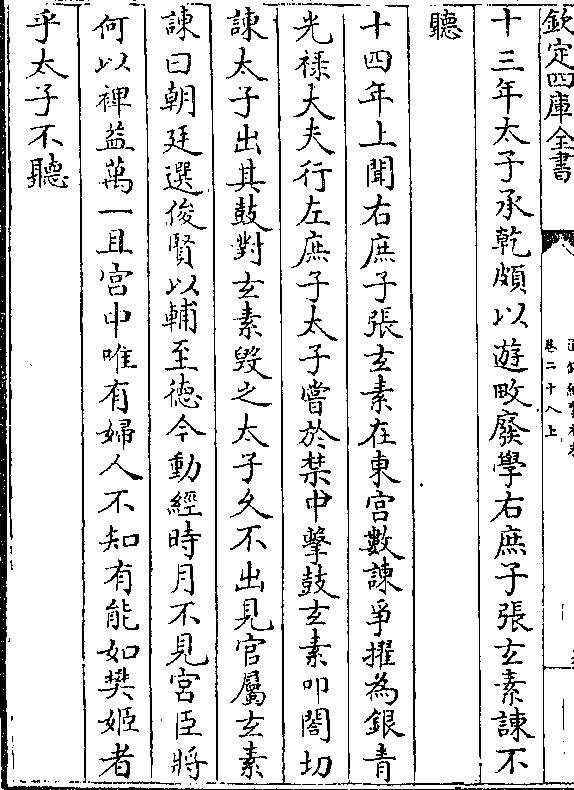 欽定四庫全書
卷二十八上
十三年太子承乾頗以遊畋廢學右庶子張玄素諫不
聽
十四年上聞右庶子張玄素在東宫數諫爭擢為銀青
光禄大夫行左庶子太子嘗於禁中擊鼓玄素叩閤切
諫太子出其鼓對玄素毁之太子久不出見官屬玄素
諫曰朝廷選俊賢以輔至德今動經時月不見宫臣將
何以裨益萬一且宫中唯有婦人不知有能如樊姬者
乎太子不聽